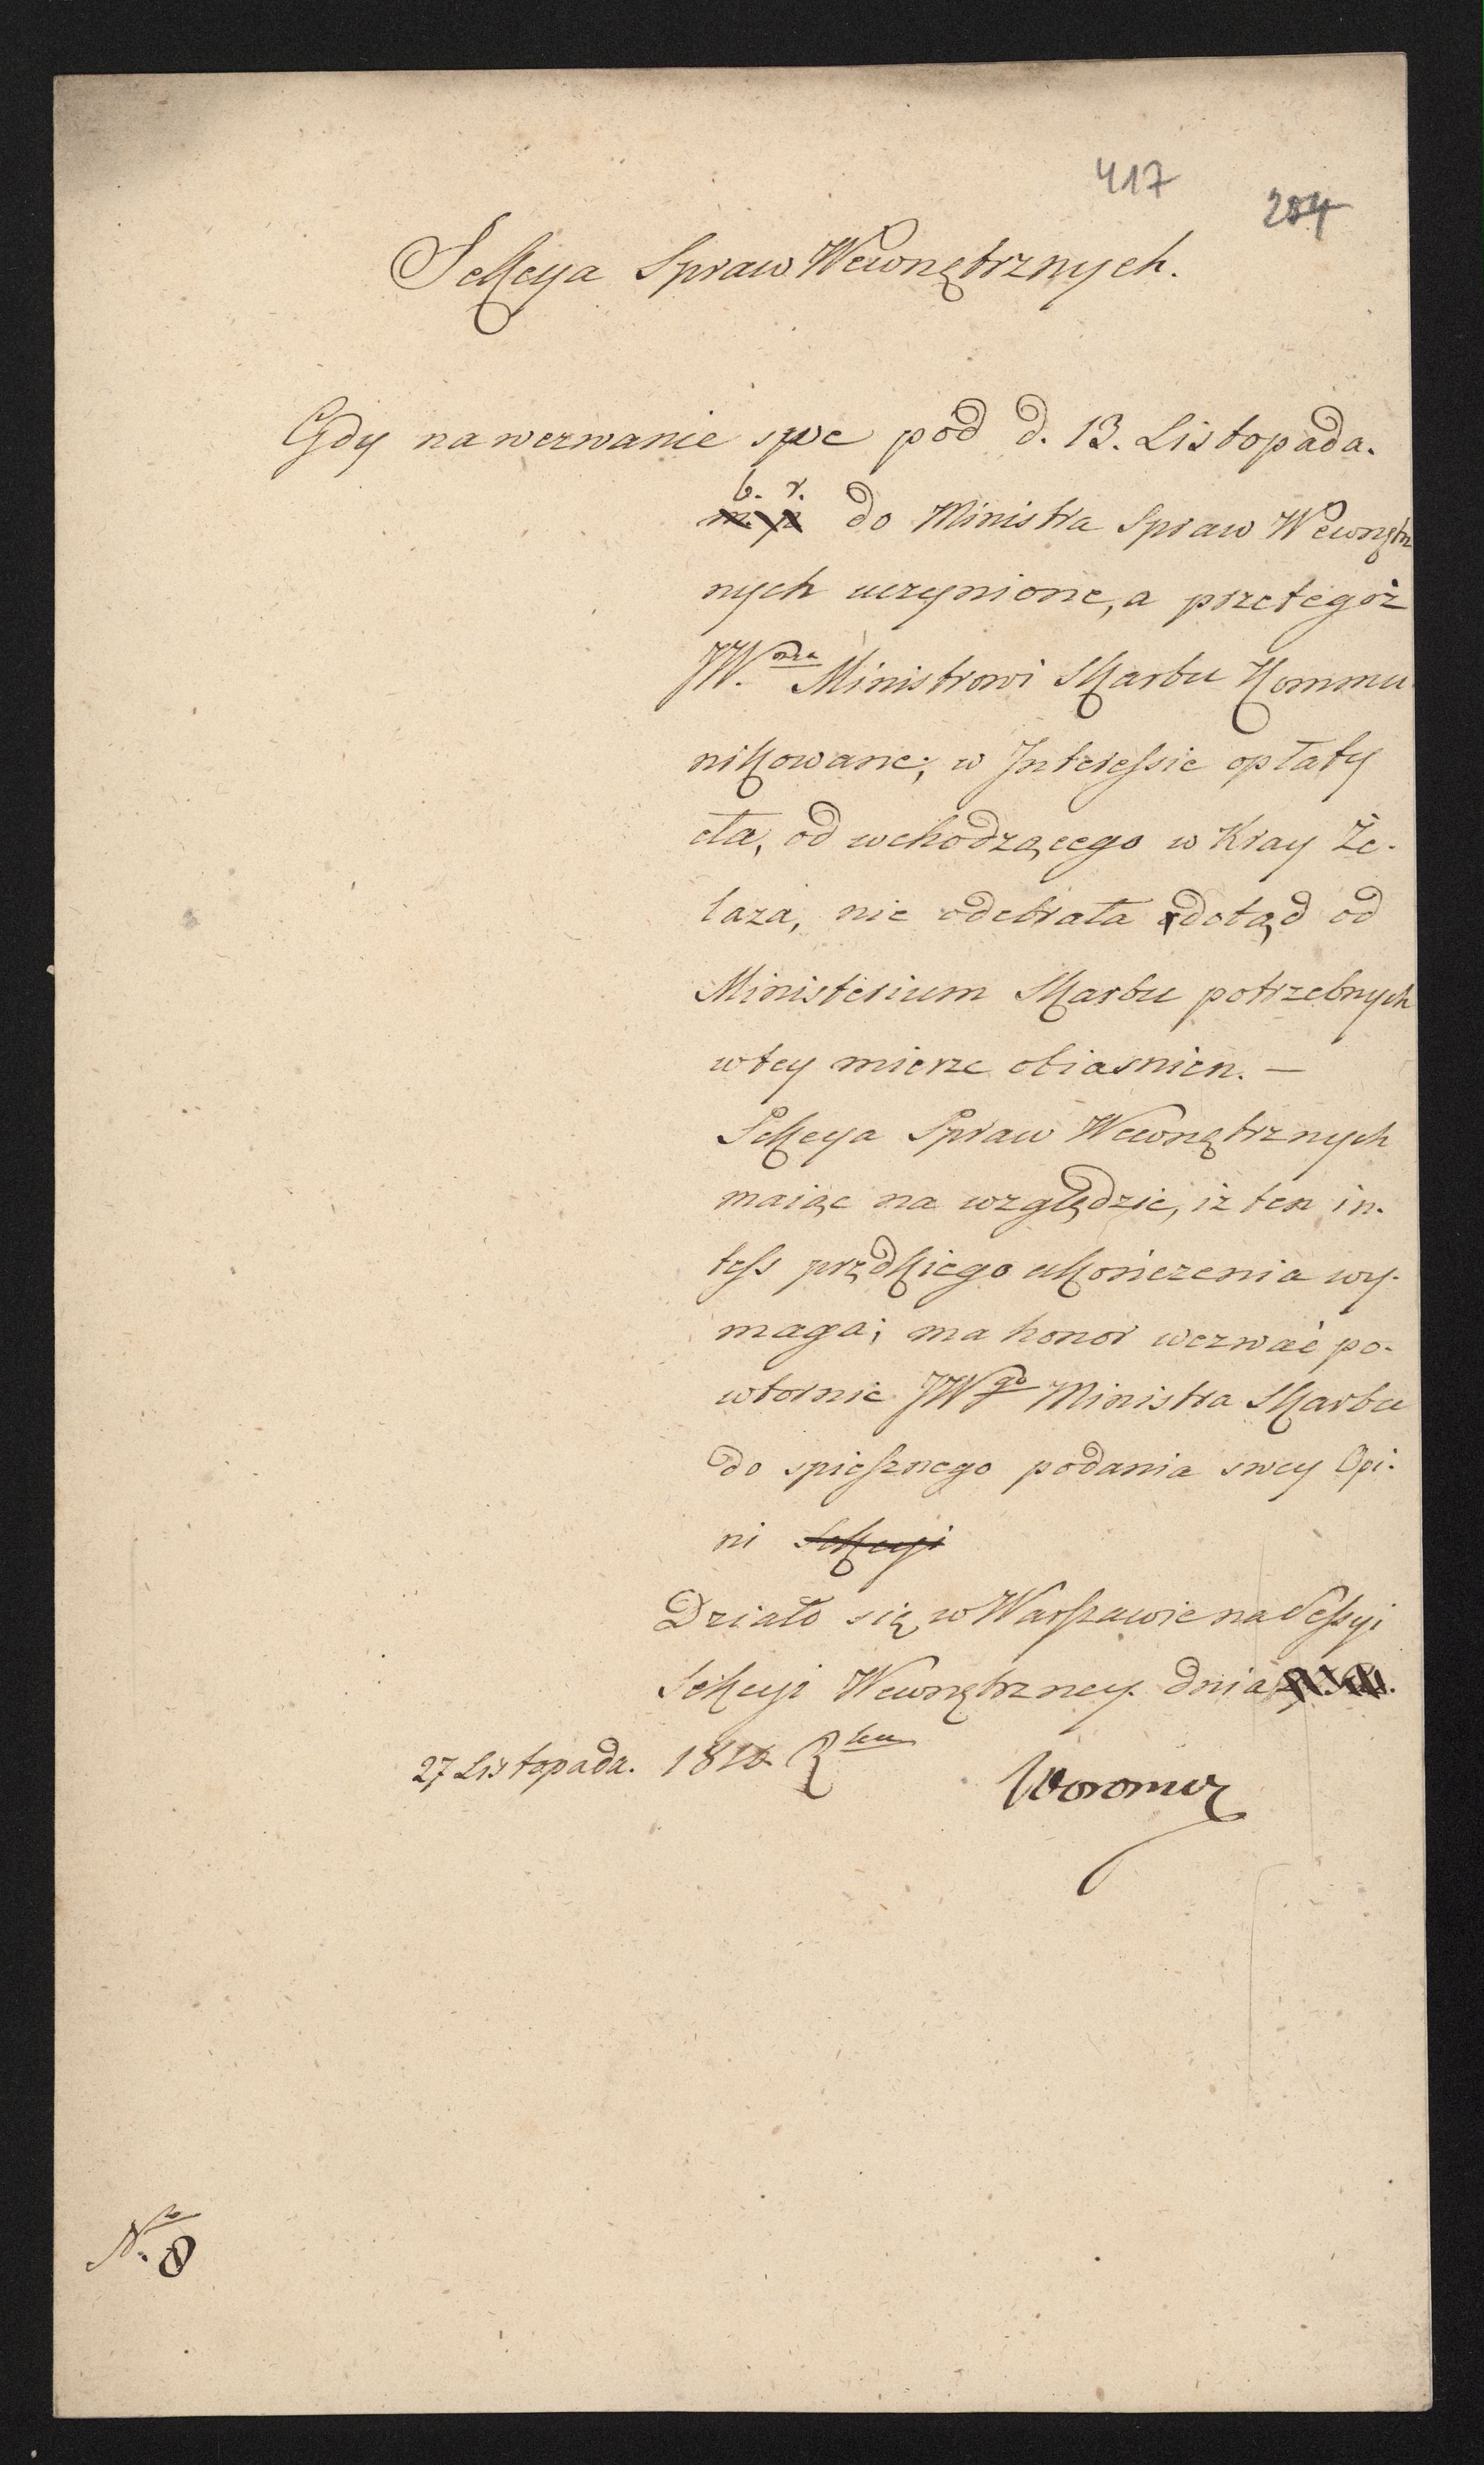 417
204
Sekcya Spraw Wewnętrznych.
Gdy na wezwanie swe pod d. 13. Listopada.
b. r.
do Ministra Spraw Wewnętrz
nych uczynione, a przetegoż
JW. Ministrowi Skarbu Kommu
nikowane; w Interessie opłaty
cła, od wchodzącego w Kray Że-
laza, nie odebrała dotąd od
Ministerium Skarbu potrzebnych
w tey mierze obiasnien. —
Sekcya Spraw Wewnętrznych
maiąc na względzie, iż ten in-
tess prędkiego ukończenia wy-
maga; ma honor wezwać po-
wtornie JWgo Ministra Skarbu
do spiesznego podania swey Opi-
ni Sekcyi
Działo się w Warszawie na Sessyi
Sekcyi Wewnętrzney dnia
27 Listopada. 1810 Rku
Woronicz
No. 8